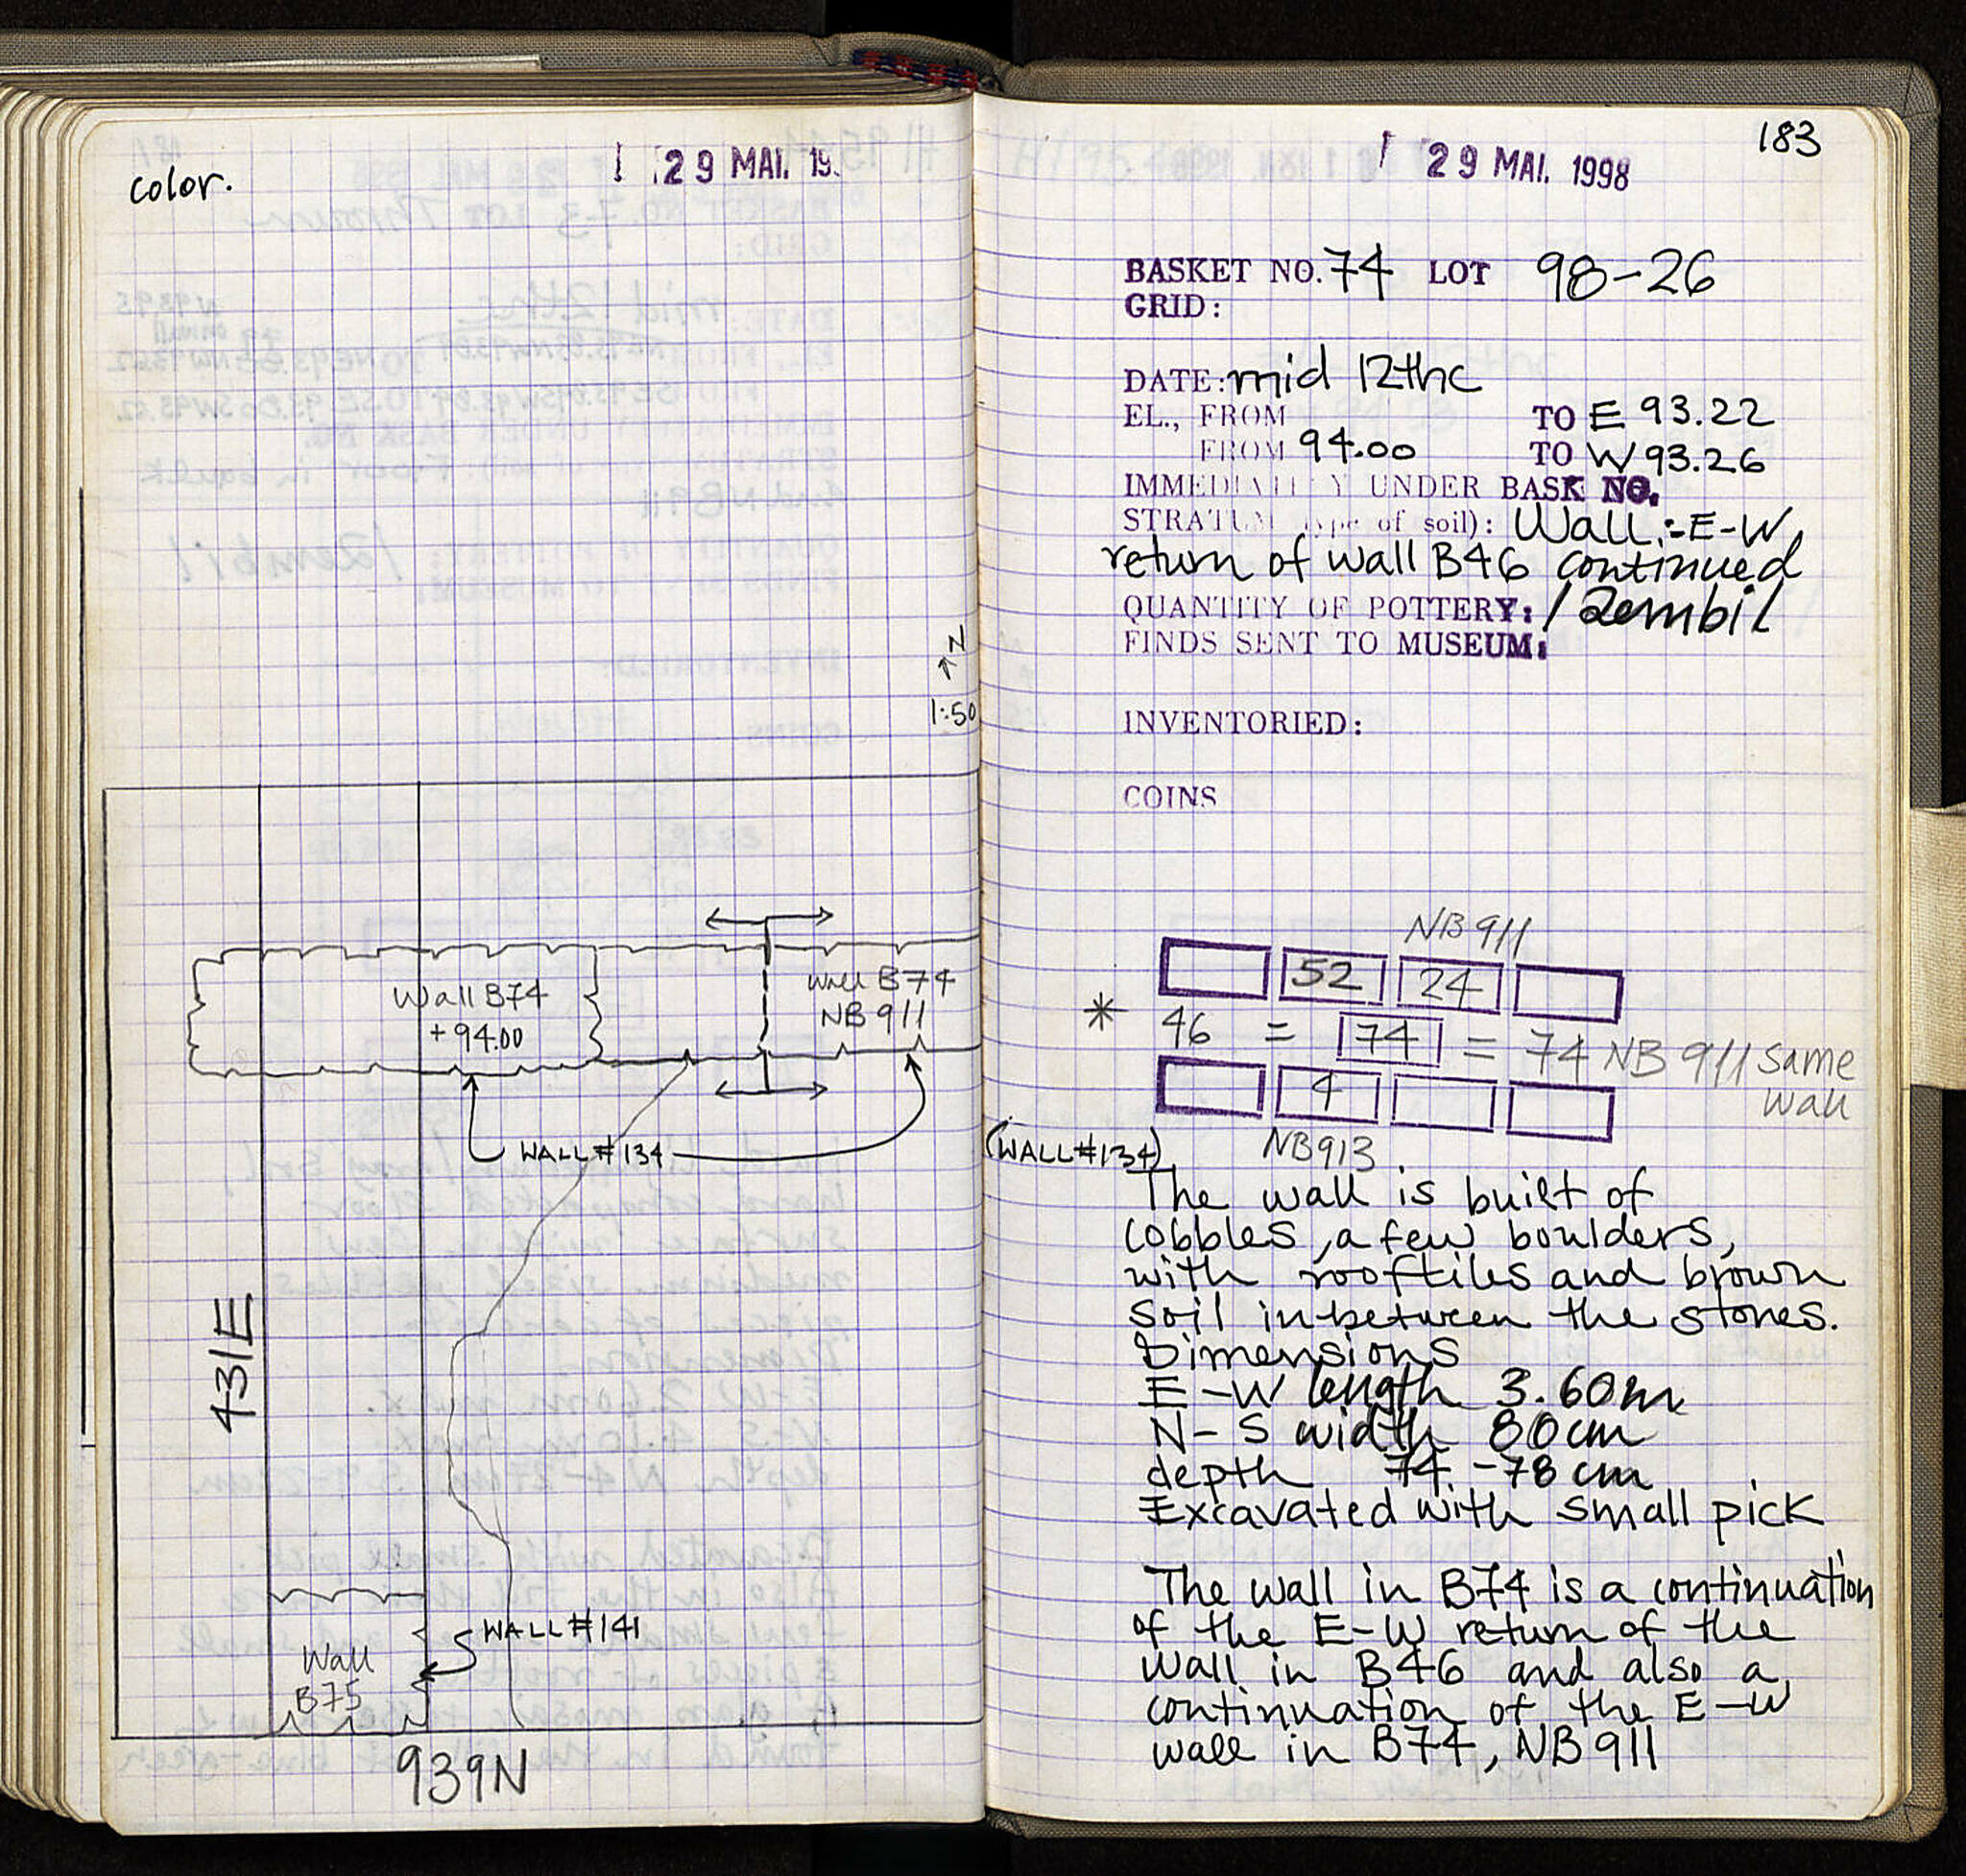 color.
29 MAI. 19
N
1:50
Wall B74
+94.00
Wall B74
NB 911
WALL #134
431E
WALL #141
Wall
B75
939N
29 MAI. 1998
183
BASKET NO. 74 LOT 98-26
GRID:
DATE: mid 12thc
EL., FROM TO E 93.22
FROM 94.00 TO W 93.26
IMMEDIATELY UNDER BASK NO.
STRATUM (type of soil): Wall: E-W
return of wall B46 continued
QUANTITY OF POTTERY: 1 zembil
FINDS SENT TO MUSEUM:
INVENTORIED:
COINS
NB 911
52 24
* 46 = 74 = 74 NB 911 same
wall
4
(WALL #134) NB913
The wall is built of
cobbles, a few boulders,
with rooftiles and brown
soil inbetween the stones.
Dimensions
E-W length 3.60m
N-S width 80cm
depth 74-78cm
Excavated with small pick
The wall in B74 is a continuation
of the E-W return of the
wall in B46 and also a
continuation of the E-W
wall in B74, NB 911